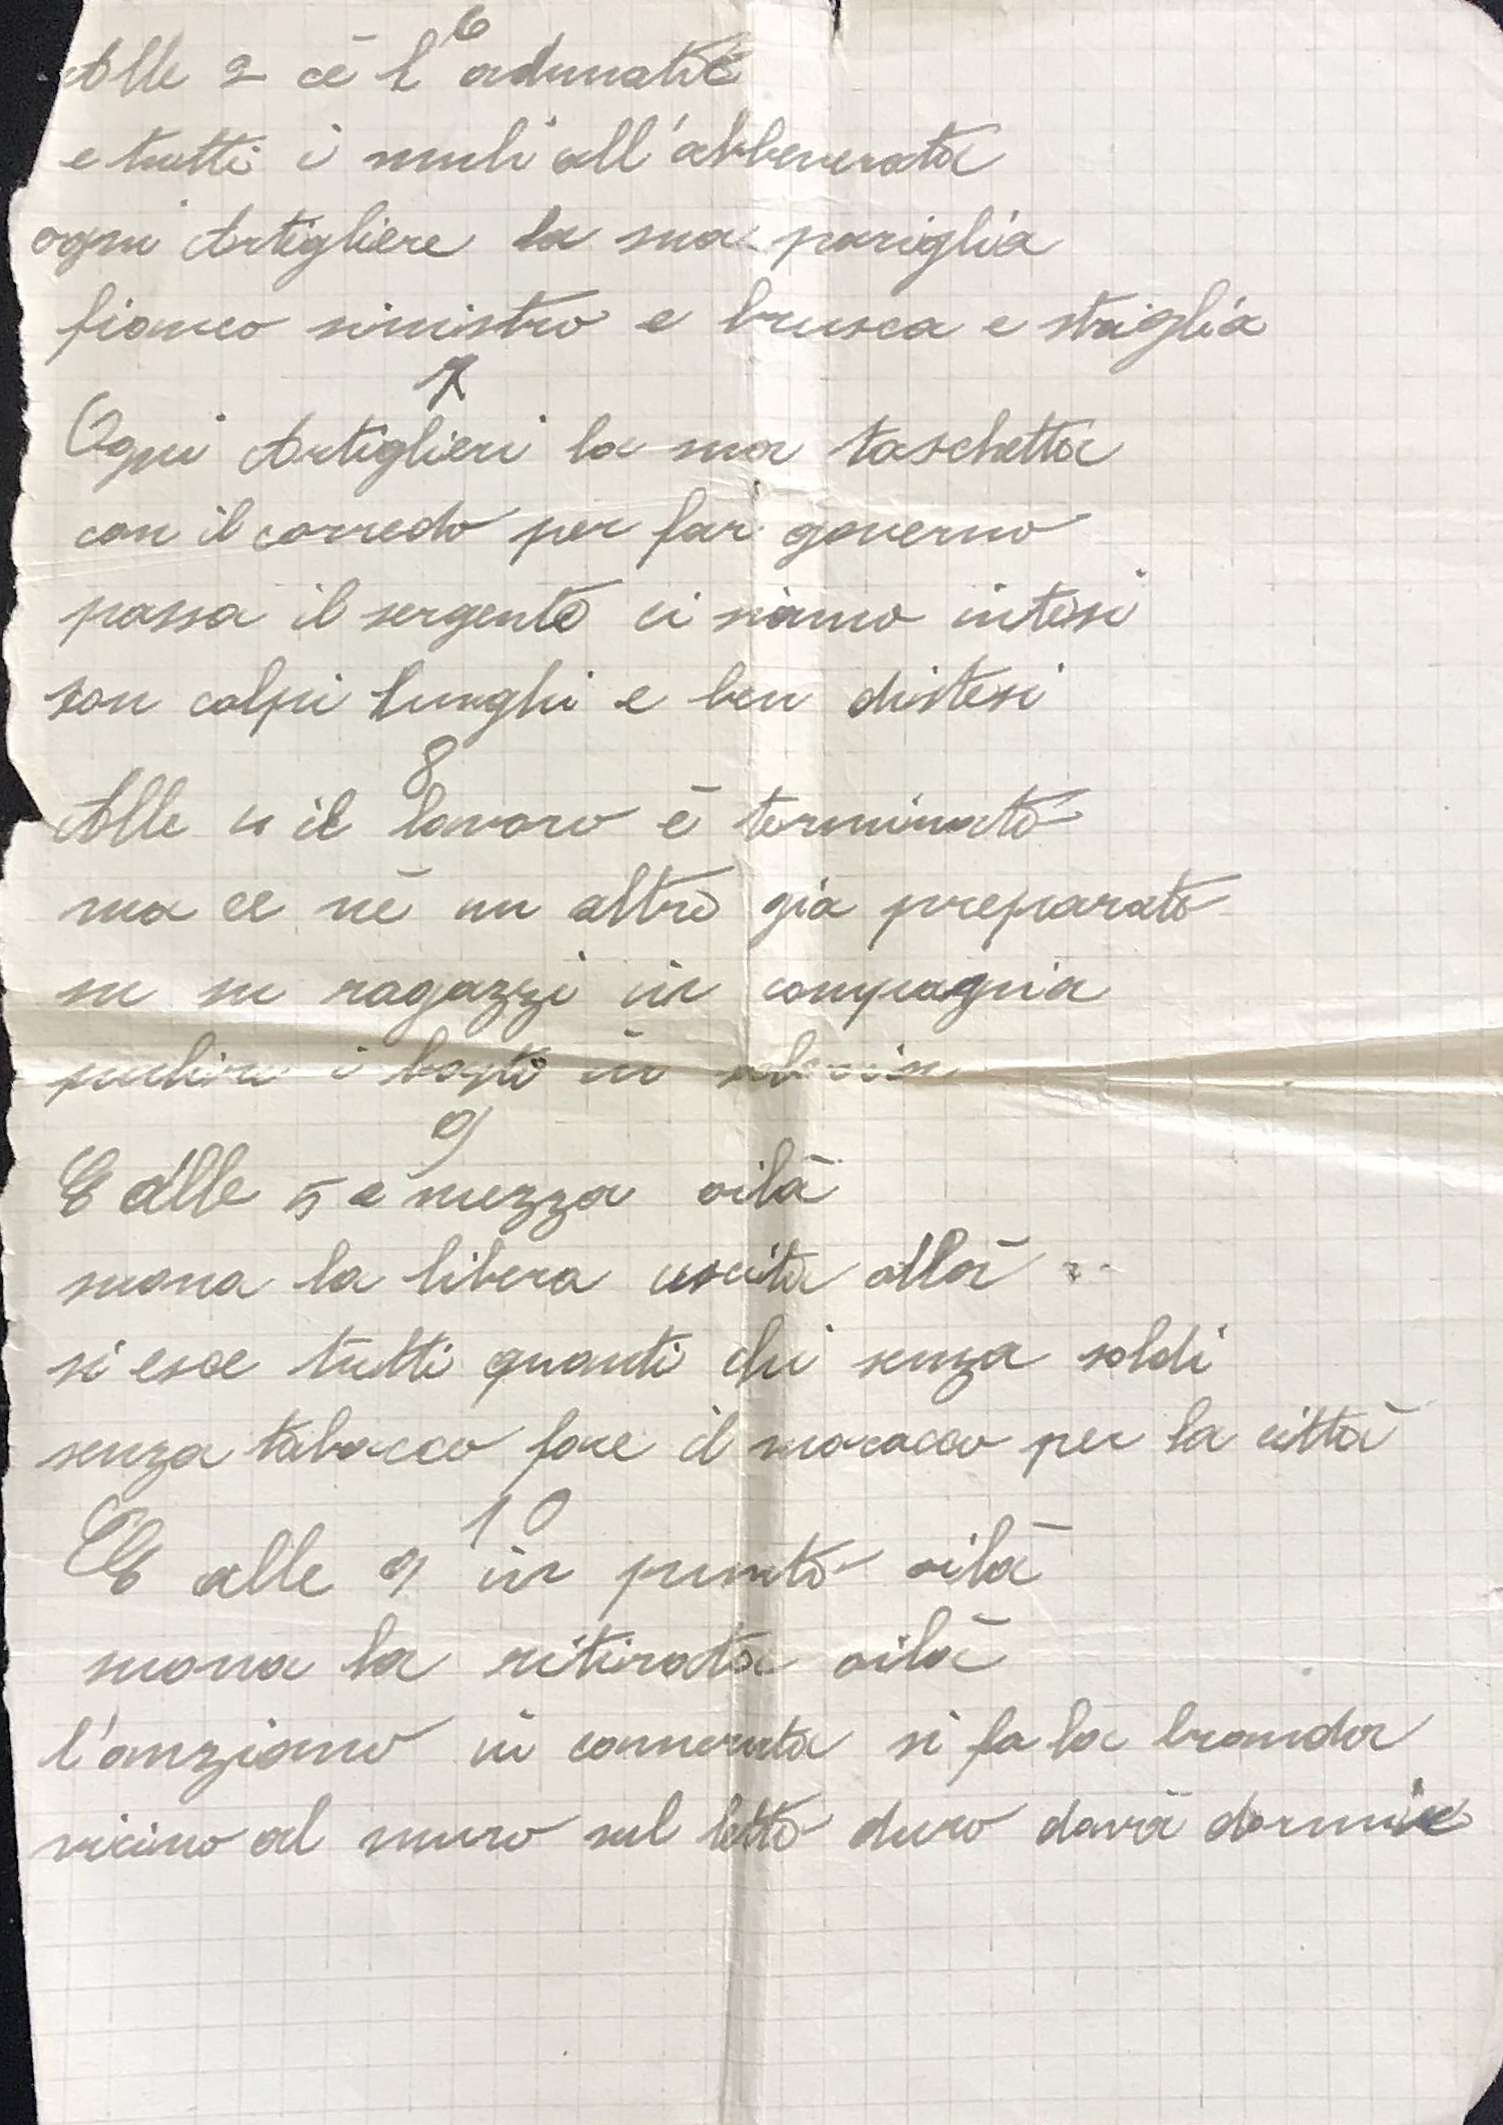 6
Alle 2 cè l'adunata
e tutti i muli all'abbeverata
ogni Artigliere la sua pariglia
fianco sinistro e brusca e striglia
7
Ogni Artiglieri la sua taschetta
con il corredo per far governo
passa il sergente ci siamo intesi
son colpi lunghi e ben distesi
8
Alle 4 il lavoro è terminato
ma ce nè un altro già preparato
su su ragazzi in compagnia
pulire i basti in
9
E alle 5 e mezza oilà
suona la libera uscita ollà
si esce tutti quanti chi senza soldi
senza tabacco fare il macacco per la città
10
E alle 9 in punto oilà
suona la ritirata oilà
l'anziano in camerata si fa la branda
vicino al muro sul letto duro dovrà dormire